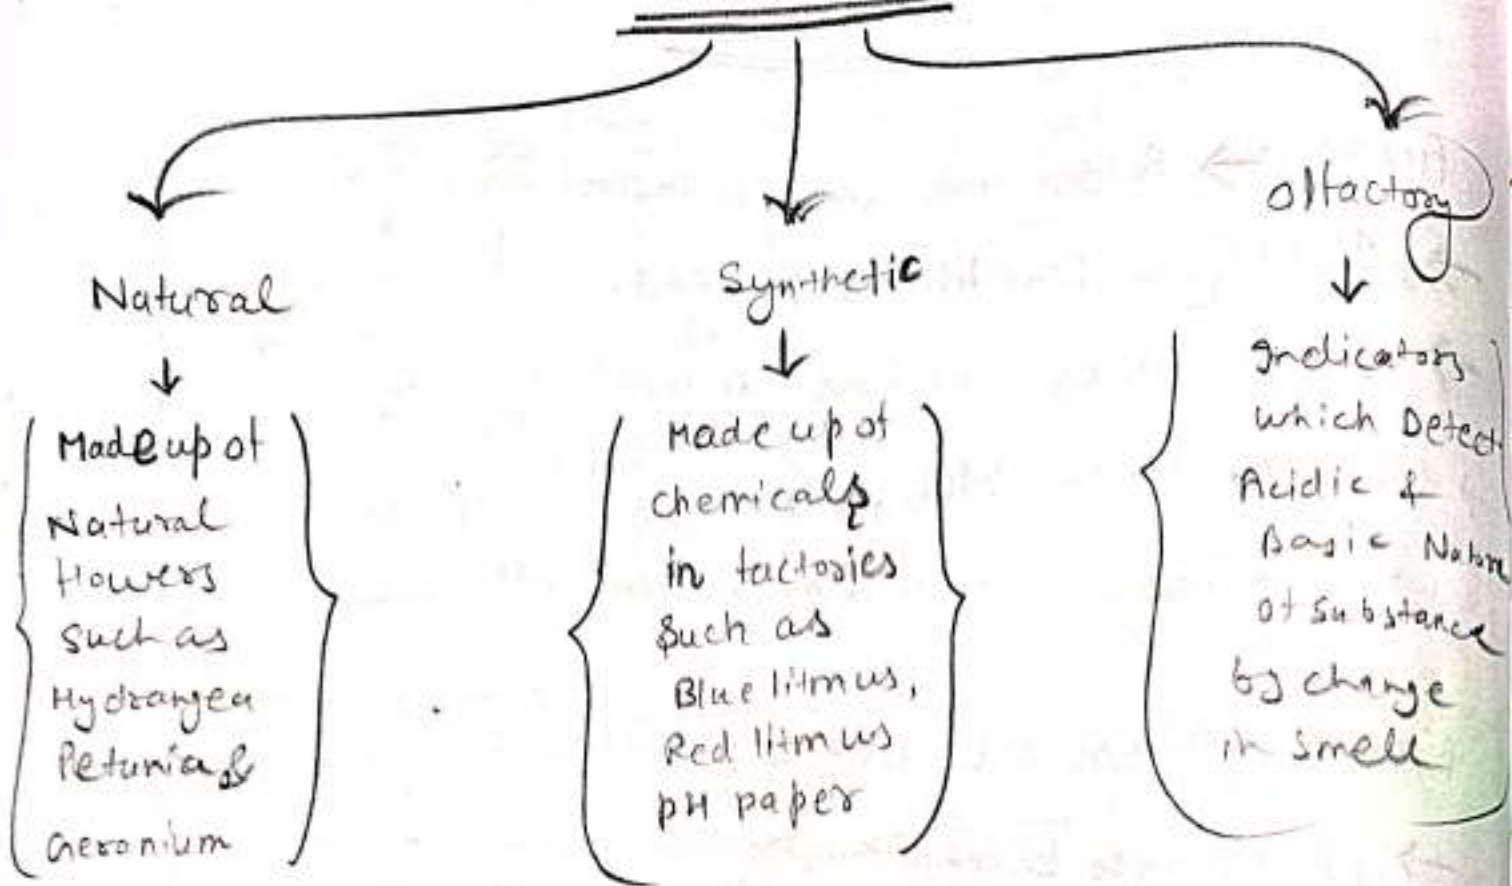 Natural
Made up of
Natural
flowers
such as
Hydrangea
Petunia &
Geronium
Synthetic
Made up of
chemicals
in factories
Such as
Blue litmus,
Red litmus
pH paper
Olfactory
Indicators
which Detect
Acidic &
Basic Nature
of Substance
by change
in smell